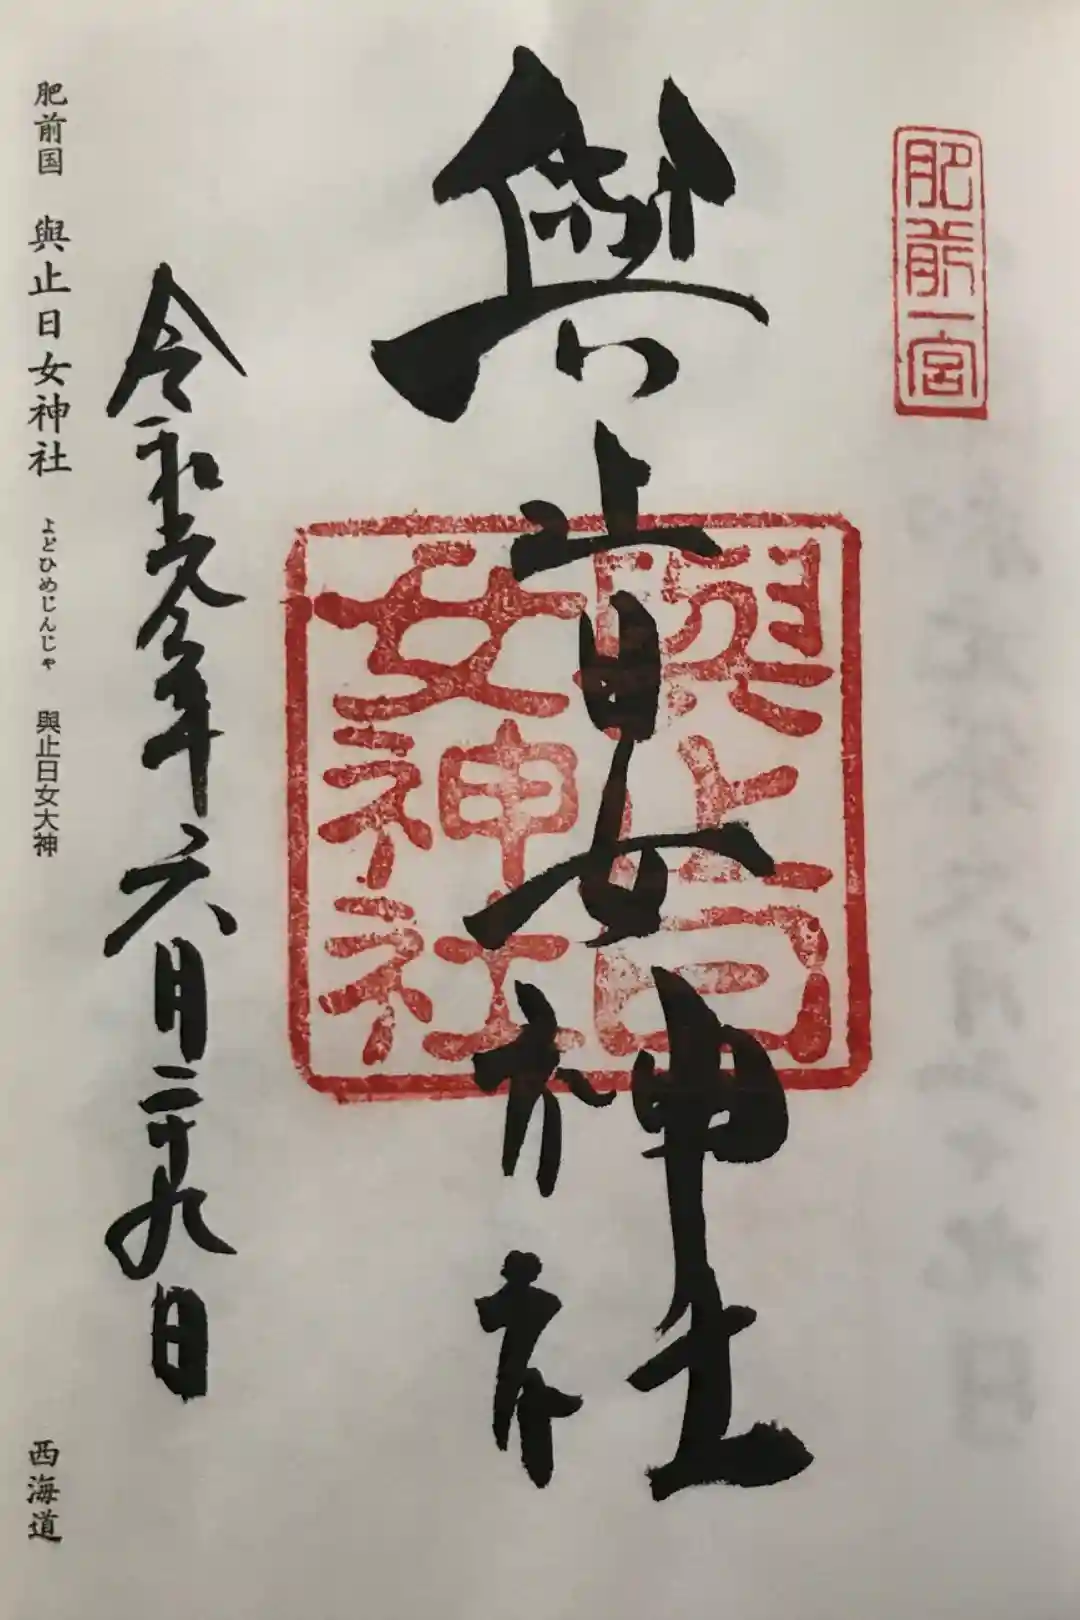 肥前一宮
與止日女神社
與止日女神社
令和元年六月二十九日
肥前国 與止日女神社 よどひめじんじゃ 與止日女大神 西海道